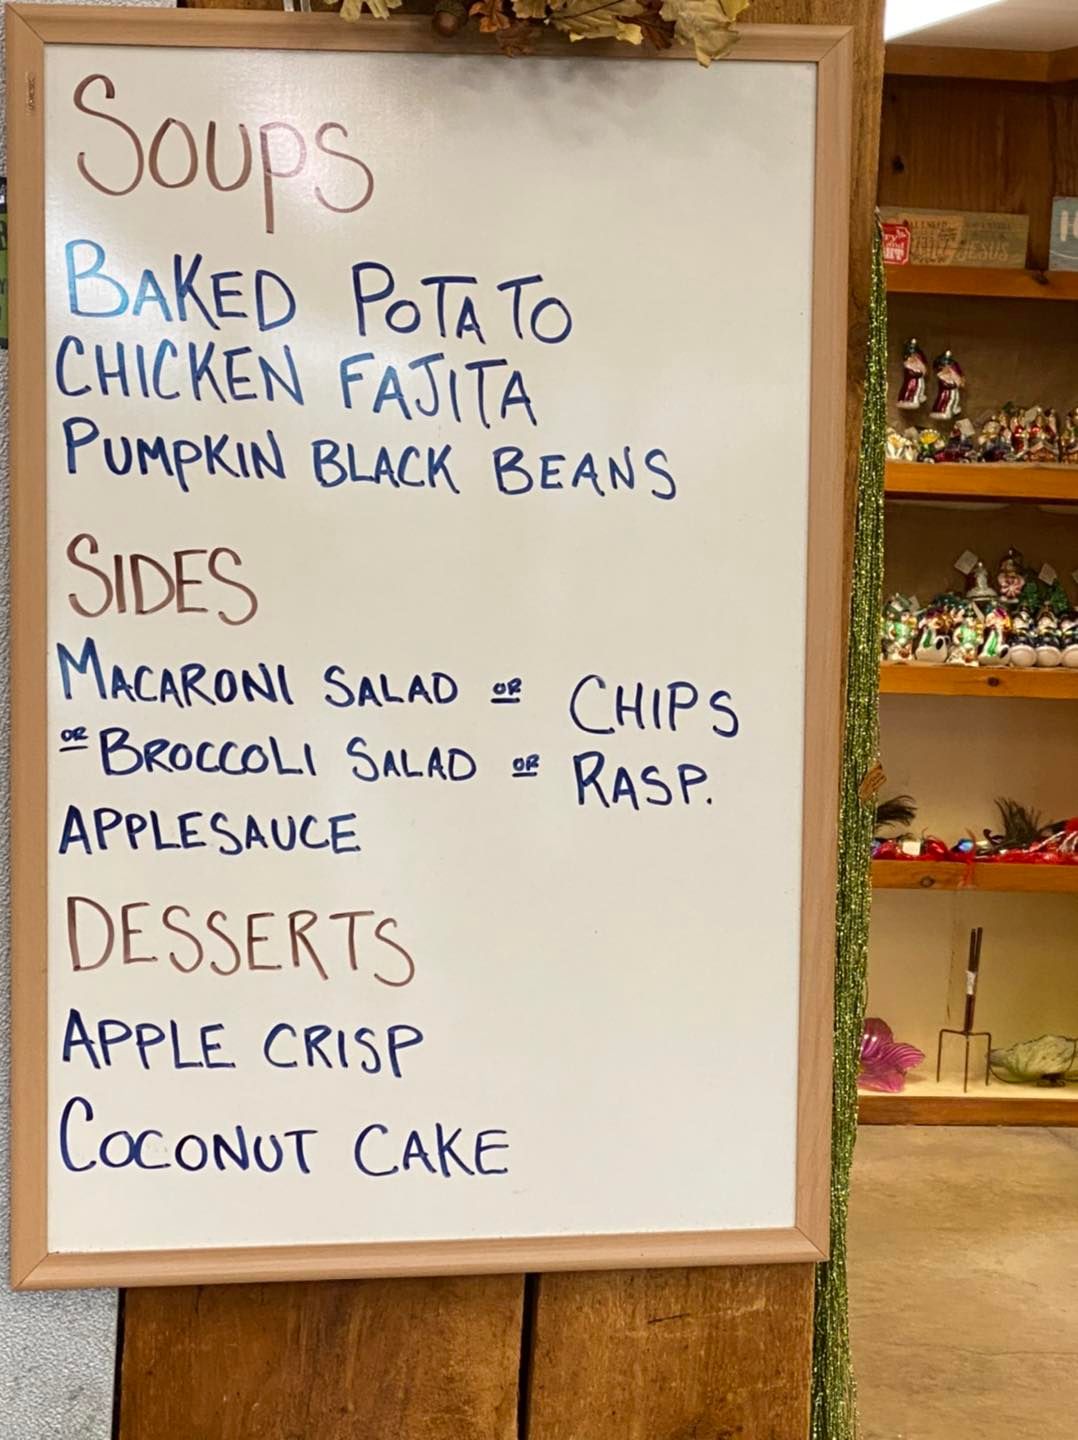 Soups
BAKED POTATO
CHICKEN FAJITA
PUMPKIN BLACK BEANS
SIDES
MACARONI SALAD OR CHIPS
OR BROCCOLI SALAD OR RASP.
APPLESAUCE
DESSERTS
APPLE CRISP
COCONUT CAKE
JESUS